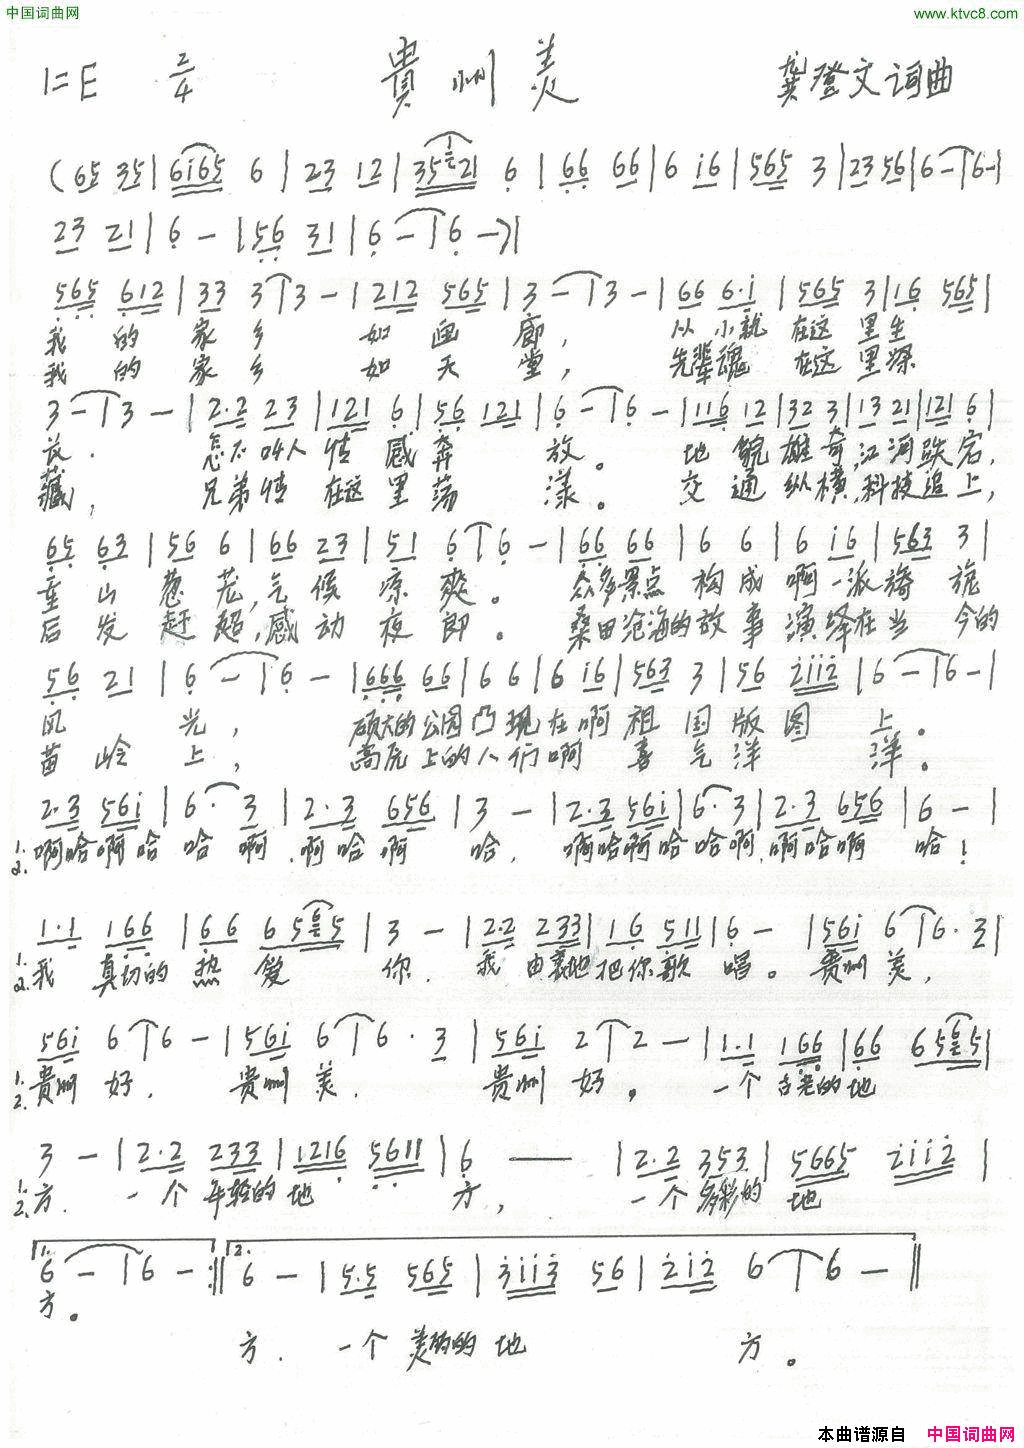 中国词曲网 www.ktvc8.com
1=E 2/4 貴州美 龚登文词曲
(65 35 | 6i65 6 | 23 12 | 35 21 6 | 66 66 | 6 i6 | 565 3 | 23 56 | 6 - | 6 - |
23 21 | 6 - | 56 31 | 6 - | 6 -) |
565 612 | 33 3 | 3 - | 212 565 | 3 - | 3 - | 66 6·i | 565 3 | i6 565 |
我的家乡 如画廊, 从小就在这里生
我的家乡 如天堂, 先辈魂在这里深
3 - | 3 - | 2·2 23 | 121 6 | 56 121 | 6 - | 6 - | 116 12 | 32 3 | 13 21 | 121 6 |
长. 怎不叫人情感奔放。 地貌雄奇,江河跌宕,
藏, 兄弟情在这里荡漾。 交通纵横,科技追上,
65 63 | 56 6 | 66 23 | 51 6 | 6 - | 66 66 | 6 6 | 6 i6 | 563 3 |
重山葱茏,气候凉爽。 众多景点构成啊一派旖旎
后发赶超,感动夜郎。 桑田沧海的故事演绎在当今的
56 21 | 6 - | 6 - | 666 66 | 6 6 | 6 i6 | 563 3 | 56 2ii2 | 6 - | 6 - |
风光, 硕大的公园凸现在啊祖国版图上。
苗岭上, 高原上的人们啊喜气洋洋。
2·3 56i | 6· 3 | 2·3 656 | 3 - | 2·3 56i | 6· 3 | 2·3 656 | 6 - |
1. 2. 啊哈啊哈哈啊,啊哈啊哈, 啊哈啊哈哈啊,啊哈啊哈!
1·1 166 | 66 6 5 5 | 3 - | 2·2 233 | 16 511 | 6 - | 56i 6 | 6· 3 |
1. 2. 我真切的热爱你. 我由衷地把你歌唱。贵州美,
56i 6 | 6 - | 56i 6 | 6· 3 | 56i 2 | 2 - | 1·1 166 | 66 65 5 |
1. 2. 贵州好. 贵州美. 贵州好。一个古老的地
3 - | 2·2 233 | 1216 5611 | 6 — | 2·2 353 | 5665 2iii2 |
1. 2. 方. 一个年轻的地方, 一个多彩的地
1. 6 - | 6 - :|| 2. 6 - | 5·5 565 | 3ii3 56 | 2i2 6 | 6 - ||
方。
方. 一个美丽的地方。
本曲谱源自 中国词曲网